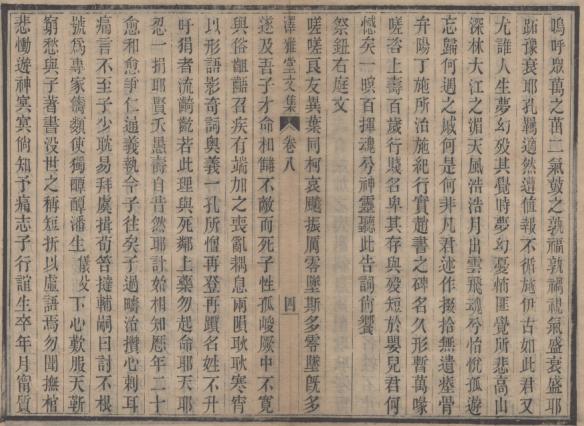 嗚呼眾萬之苗二氣鼓之孰福孰禍視氣盛衰盛耶
跖豫衰耶孔羈適然遭值報不循施伊古如此君又
尤誰人生夢幻歿其覺時夢幻憂悄匪覺所悲高山
深林大江之湄天風浩浩月出雲飛魂兮怡悅孤遊
忘歸何遇之戚何是何非凡君述作掇拾無遺瘞骨
弁陽丁施所治施紀行實趙書之碑名久形暫萬喙
嗟咨上壽百歲行賤名卑其存與歿短於嬰兒君何
憾矣一暝百揮魂兮神靈聽此告詞尚饗
祭鈕右庭文
嗟嗟良友異葉同柯哀飈振厲零墜斯多零墜旣多
澤雅堂文集 卷八 四
遂及吾子才命相讎不敵而死子性孤峻厥中不寬
與俗齟齬召疾有端加之喪亂耦息兩隕耿耿寒宵
以形語影奇詞奧義一孔所憎再登再躓名姓不升
吁狷者流齮齕若此理與死鄰上藥勿起命耶天耶
忍一捐耶賢夭愚壽自昔然耶計始相知歷年二十
愈和愈爭仁過義執令子往矣子過疇治攢心刺耳
痛言不至子少耽易拜虞揖荀笞撻輔嗣曰討不根
號為專家儔類使獨醰醰潘生儀歿下心歎服天靳
窮愁與子著書沒世之稱短折以虛語焉勿聞撫棺
悲慟遊神冥冥倘知予痛志子行誼生卒年月甯質